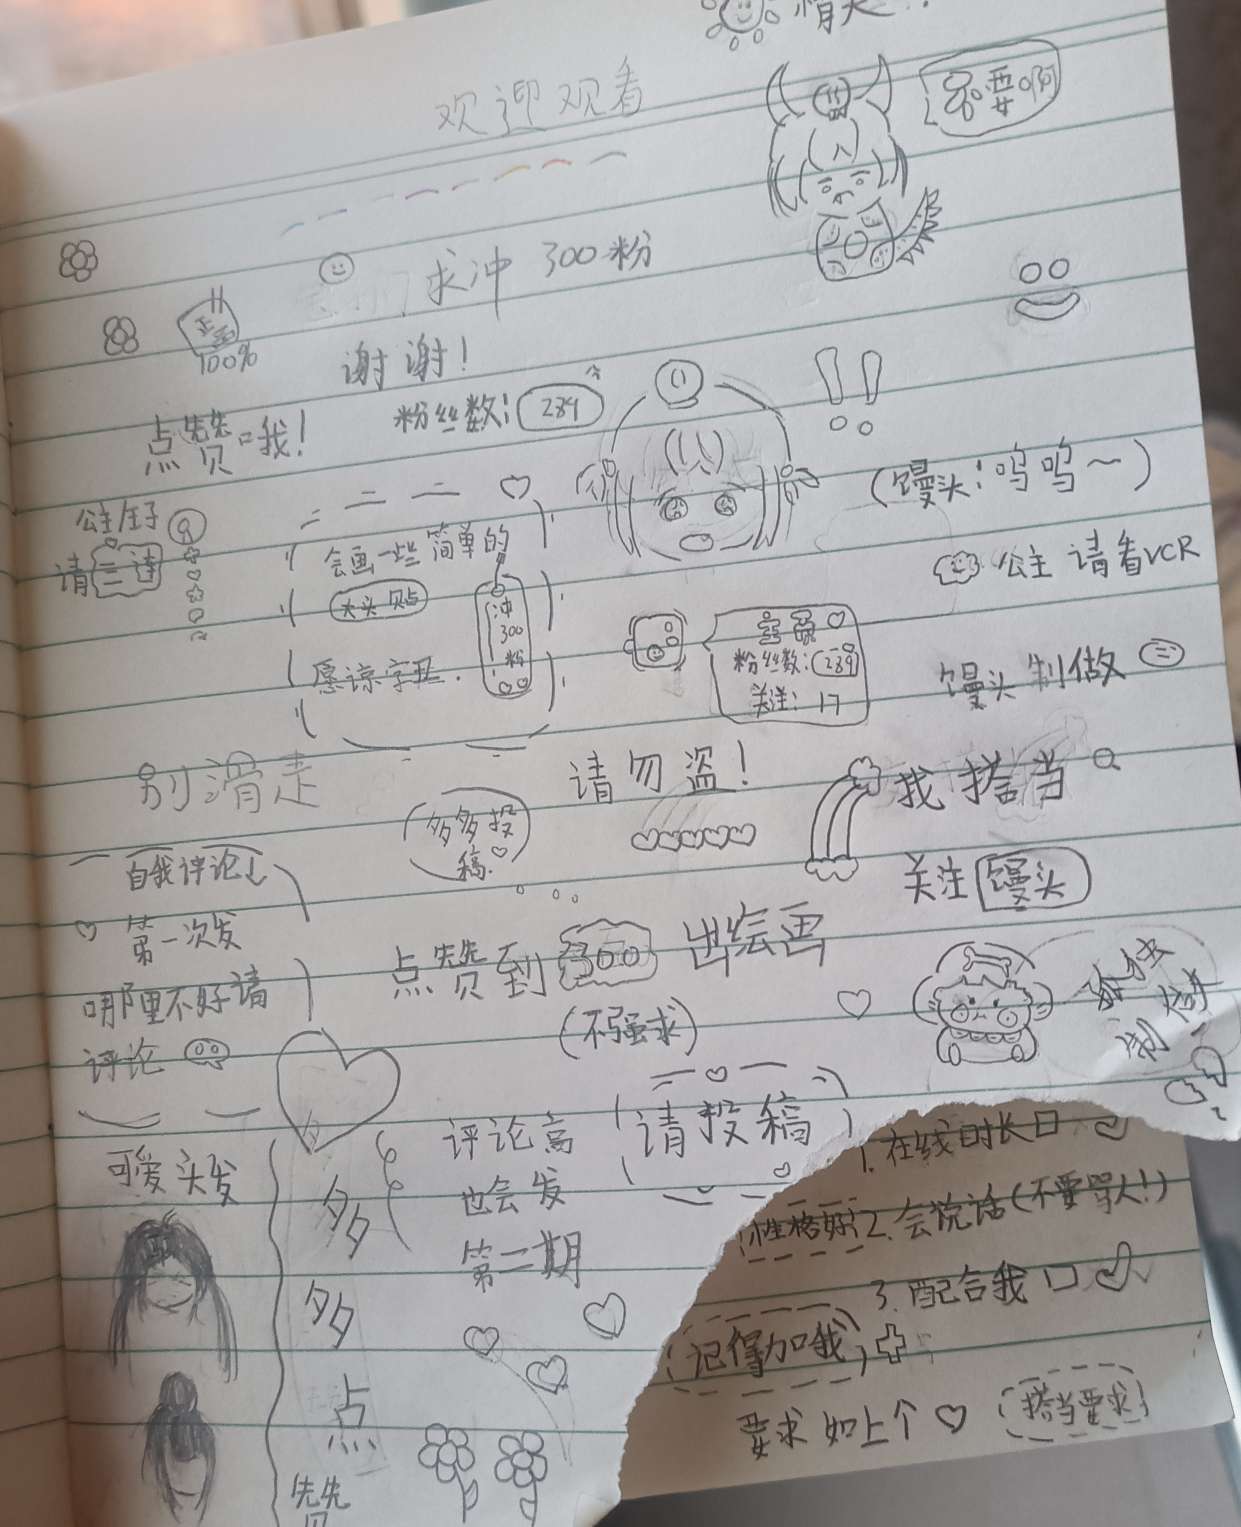 欢迎观看
不要啊
求冲 300 粉
100%
谢谢！
点赞哦！
粉丝数：289
公主/王子
请三连
会画一些简单的
大头贴
冲
300
粉
(馒头：呜呜～)
公主 请看VCR
粉丝数：289
关注：17
馒头 制做
别滑走
请勿盗！
多多投
稿
我 搭当
关注 馒头
自我评论↓
第一次发
哪里不好请
评论
点赞到 300 出绘画
(不强求)
可爱头发
评论高
也会发
第二期
请投稿
多
多
点
赞
1. 在线时长日
性格好
2. 会说话(不要骂人！)
3. 配合我 口
记得加哦
要求 如上个
搭当要求